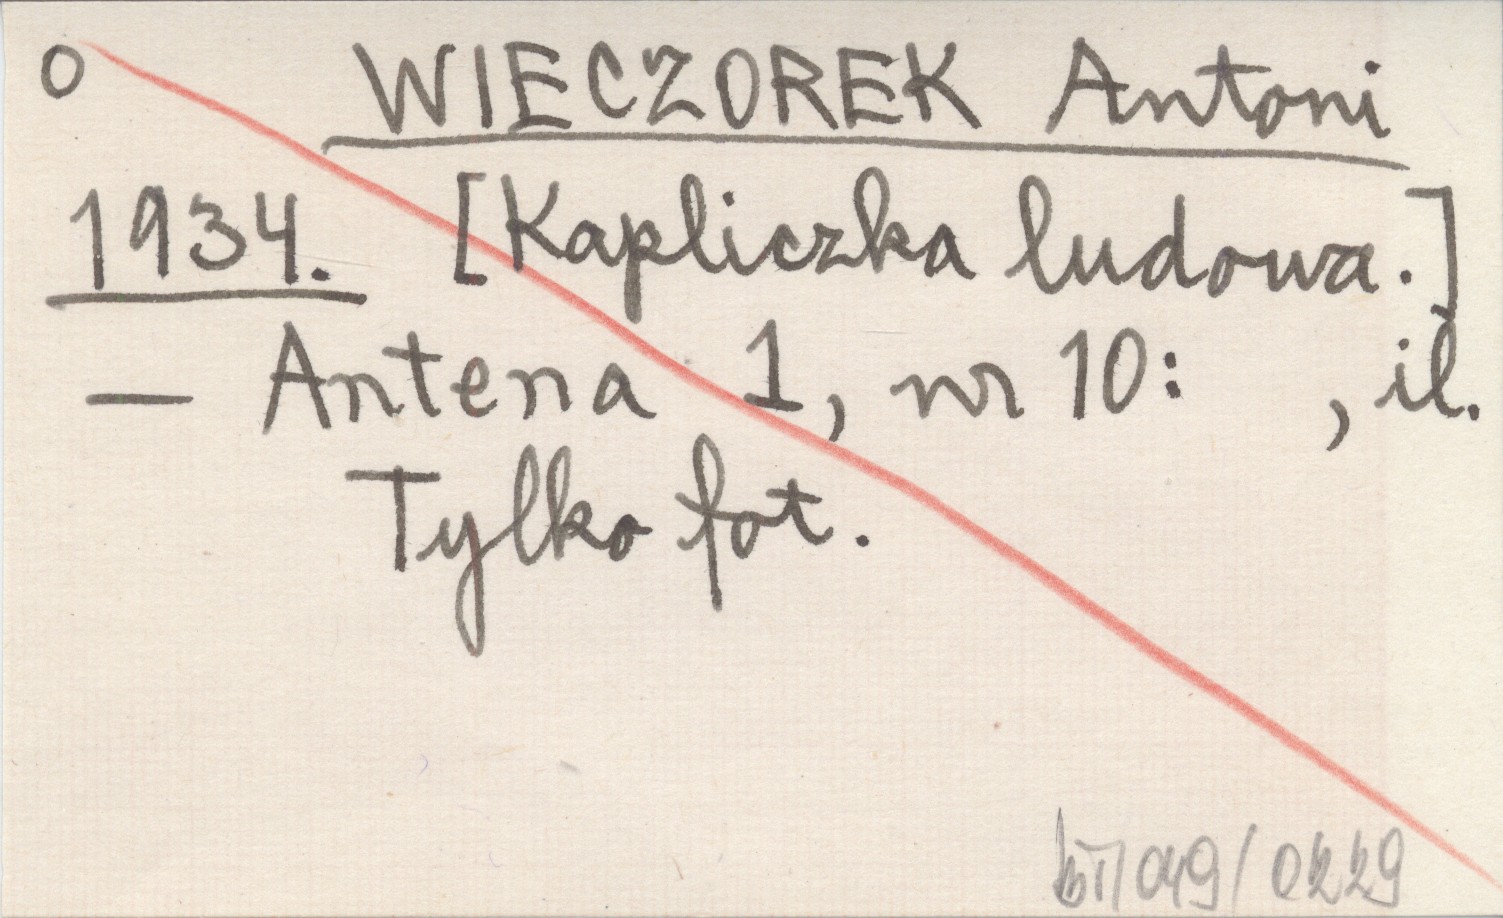 O WIECZOREK Antoni
1934. [Kapliczka ludowa.]
— Antena 1, nr 10: , il.
Tylko fot.